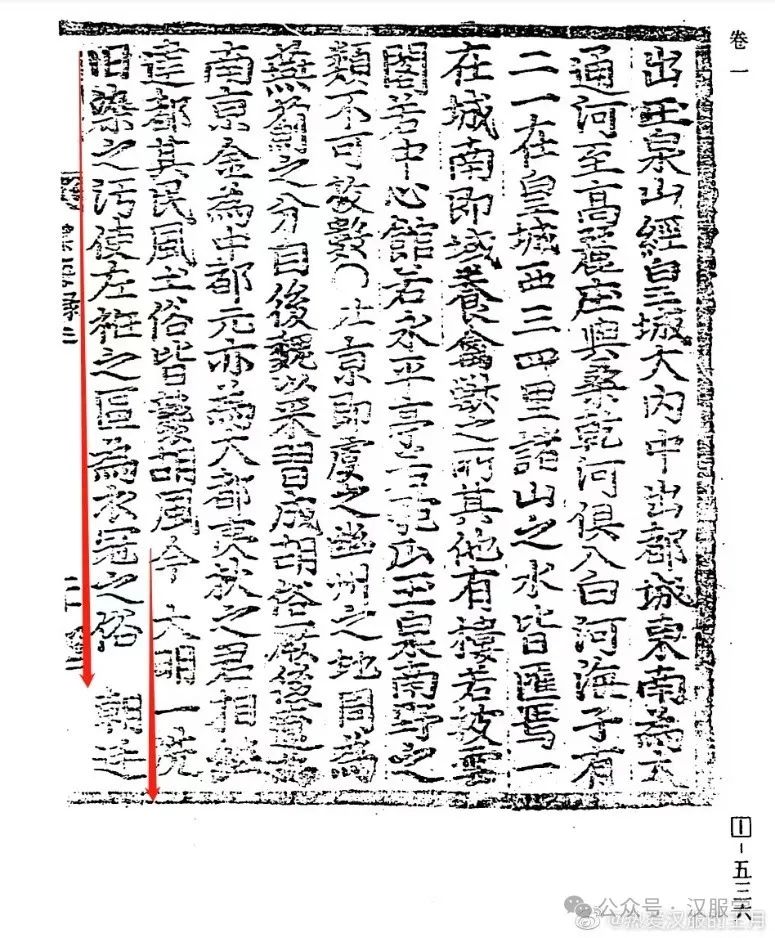 卷一
出玉泉山經自皇城大內中出都城東南為大
通河至高麗庄與桑乾河俱入白河海子有
二一在皇城西三四里諸山之水皆匯焉一
在城南即域養禽獸之所其他有樓若披雲
閣若中心館若永平亭若 玉泉南野之
類不可枚數○北京即虞之幽州之地周為
燕薊之分自後魏以来習成胡俗厥後遼為
南京金為中都元亦為大都夷狄之君相繼
建都其民風土俗皆襲胡風今 大明一洗
旧染之汚使左衽之區為衣冠之俗 朝廷
1-五三六
公众号·汉服荟